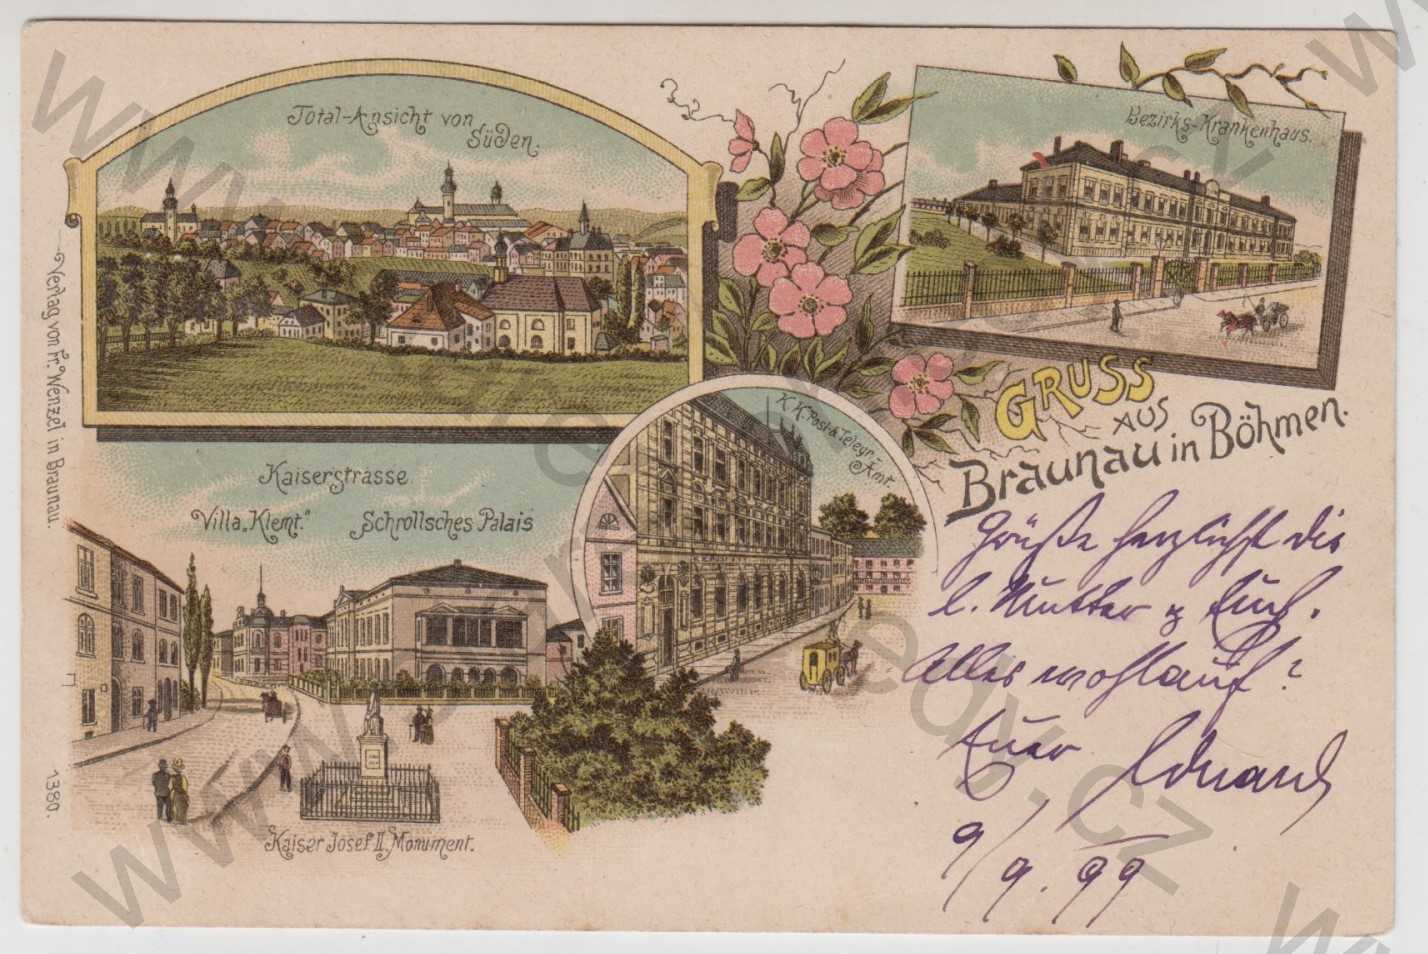 Total-Ansicht von
Süden.
Bezirks-Krankenhaus.
GRUSS
AUS
Braunau in Böhmen.
K.K. Post- & Telegr.-
Amt
Kaiserstrasse
Villa „Klemt.“ Schrollsches Palais
Kaiser Josef II. Monument.
Verlag von Fr. Wenzel in Braunau.
1380.
Grüße herzlichst die
l. Mutter & Euch.
Alles wohlauf?
Euer Eduard
9/9. 99